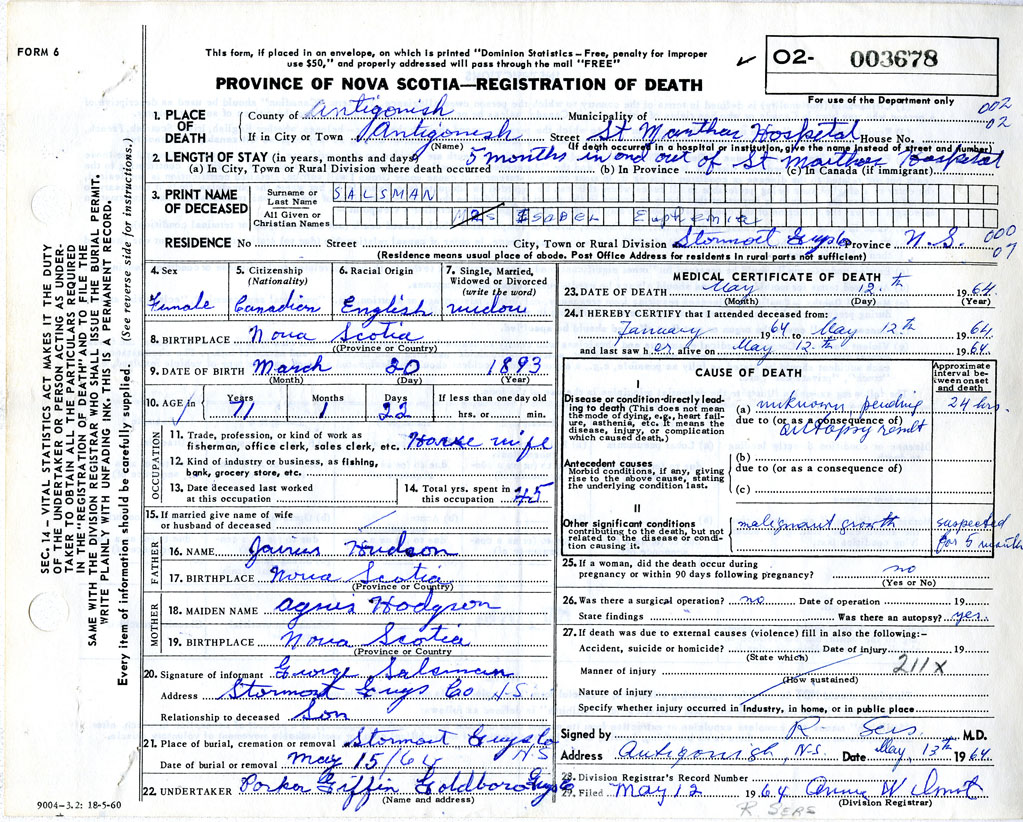 FORM 6
This form, if placed in an envelope, on which is printed "Dominion Statistics – Free, penalty for improper
use $50," and properly addressed will pass through the mail "FREE"
✓ 02- 003678
PROVINCE OF NOVA SCOTIA—REGISTRATION OF DEATH
For use of the Department only
002
02
1. PLACE OF DEATH
County of Antigonish Municipality of
If in City or Town Antigonish Street St Marthas Hospital House No.
(Name) (If death occurred in a hospital or institution, give the name instead of street and number)
2. LENGTH OF STAY (in years, months and days) 5 months in and out of St Marthas Hospital
(a) In City, Town or Rural Division where death occurred (b) In Province (c) In Canada (if immigrant)
3. PRINT NAME OF DECEASED
Surname or Last Name SALSMAN
All Given or Christian Names Mrs Isabel Euphemia
RESIDENCE No Street City, Town or Rural Division Stormont Guysbo Province N.S. 000
07
(Residence means usual place of abode. Post Office Address for residents in rural parts not sufficient)
4. Sex Female
5. Citizenship (Nationality) Canadian
6. Racial Origin English
7. Single, Married, Widowed or Divorced (write the word) widow
8. BIRTHPLACE Nova Scotia
(Province or Country)
9. DATE OF BIRTH March 20 1893
(Month) (Day) (Year)
10. AGE in Years 71 Months 1 Days 22 If less than one day old hrs. or min.
OCCUPATION
11. Trade, profession, or kind of work as fisherman, office clerk, sales clerk, etc. House wife
12. Kind of industry or business, as fishing, bank, grocery store, etc.
13. Date deceased last worked at this occupation
14. Total yrs. spent in this occupation 45
15. If married give name of wife or husband of deceased
FATHER
16. NAME Jairus Hudson
17. BIRTHPLACE Nova Scotia
(Province or Country)
MOTHER
18. MAIDEN NAME Agnes Hodgson
19. BIRTHPLACE Nova Scotia
(Province or Country)
20. Signature of informant George Salsman
Address Stormont Guys Co N.S.
Relationship to deceased Son
21. Place of burial, cremation or removal Stormont Guysbo N S
Date of burial or removal May 15/64
22. UNDERTAKER Parker Giffin Goldboro Guys Co
(Name and address)
MEDICAL CERTIFICATE OF DEATH
23. DATE OF DEATH May 12th 1964
(Month) (Day) (Year)
24. I HEREBY CERTIFY that I attended deceased from:
January 1964 to May 12th 1964
and last saw her alive on May 12th 1964
CAUSE OF DEATH
Approximate interval between onset and death
I
Disease or condition directly leading to death (This does not mean the mode of dying, e.g., heart failure, asthenia, etc. It means the disease, injury, or complication which caused death.)
(a) unknown, pending 24 hrs.
due to (or as a consequence of) autopsy result
Antecedent causes
Morbid conditions, if any, giving rise to the above cause, stating the underlying condition last.
(b)
due to (or as a consequence of)
(c)
II
Other significant conditions contributing to the death, but not related to the disease or condition causing it.
malignant growth suspected for 5 months
25. If a woman, did the death occur during pregnancy or within 90 days following pregnancy? no
(Yes or No)
26. Was there a surgical operation? no Date of operation 19
State findings Was there an autopsy? yes
27. If death was due to external causes (violence) fill in also the following:–
Accident, suicide or homicide? Date of injury 19
(State which)
Manner of injury 211X
(How sustained)
Nature of injury
Specify whether injury occurred in industry, in home, or in public place
Signed by R Sers M.D.
Address Antigonish, N.S. Date May 13th 1964
28. Division Registrar's Record Number
29. Filed May 12 1964 Anne Wilmot
(Division Registrar)
R SERS
9004–3.2: 18-5-60
SEC. 14 – VITAL STATISTICS ACT MAKES IT THE DUTY
OF THE UNDERTAKER OR PERSON ACTING AS UNDER-
TAKER TO OBTAIN ALL THE PARTICULARS REQUIRED
IN THE "REGISTRATION OF DEATH" AND TO FILE THE
SAME WITH THE DIVISION REGISTRAR WHO SHALL ISSUE THE BURIAL PERMIT.
WRITE PLAINLY WITH UNFADING INK. THIS IS A PERMANENT RECORD.
Every item of information should be carefully supplied. (See reverse side for instructions.)